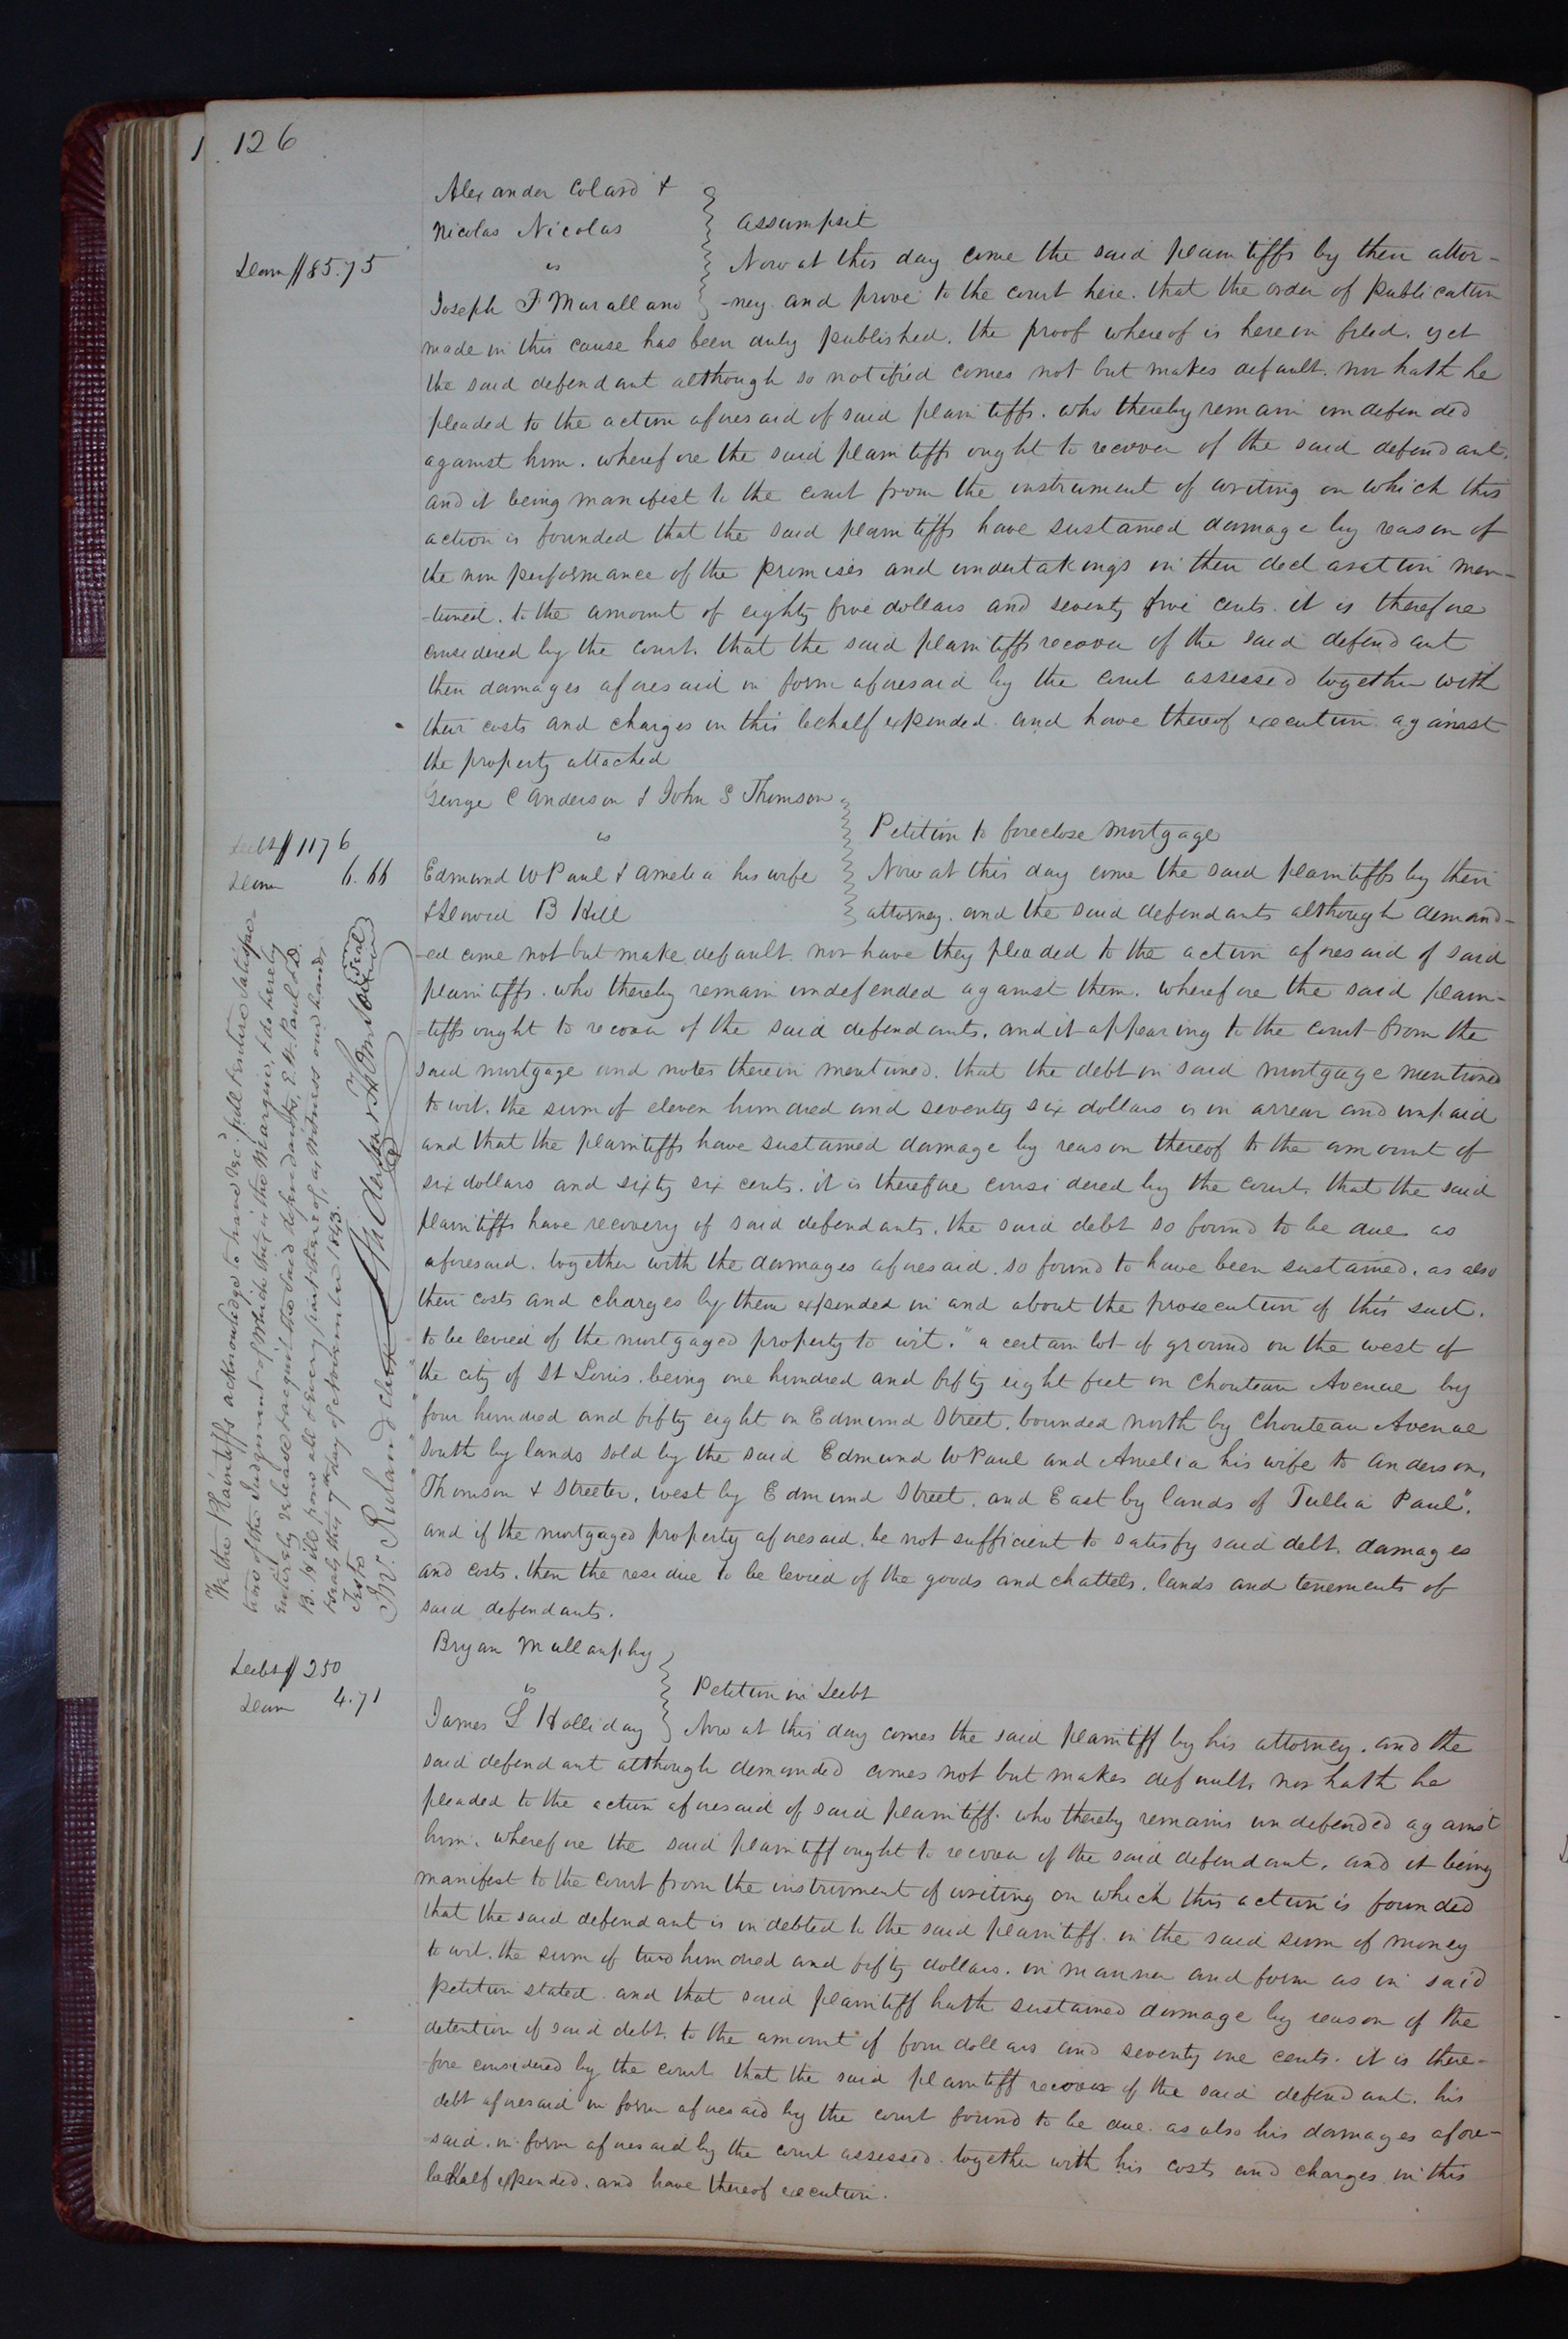 126
Alexander Colard &
Nicolas Nicolas
vs
Joseph F Marallano
assumpsit
Dam $85.75
Now at this day come the said plaintiffs by their attor-
-ney. and prove to the court here. that the order of publication
made in this cause has been duly published. the proof whereof is herein filed. yet
the said defendant although so notified comes not but makes default. nor hath he
pleaded to the action aforesaid of said plaintiffs. who thereby remain undefended
against him. wherefore the said plaintiffs ought to recover of the said defendant.
and it being manifest to the court from the instrument of writing on which this
action is founded that the said plaintiffs have sustained damage by reason of
the non performance of the promises and undertakings in their declaration men-
-tioned. to the amount of eighty five dollars and seventy five cents. it is therefore
considered by the court. that the said plaintiffs recover of the said defendant
their damages aforesaid in form aforesaid by the court assessed together with
their costs and charges in this behalf expended. and have thereof execution against
the property attached
George C Anderson & John S Thomson
vs
Edmund W Paul & Amelia his wife
& David B Hill
Debt $1176
Dam 6.66
Petition to foreclose mortgage
Now at this day come the said plaintiffs by their
attorney. and the said defendants although demand-
-ed come not but make default. nor have they pleaded to the action aforesaid of said
plaintiffs. who thereby remain undefended against them. wherefore the said plain-
-tiffs ought to recover of the said defendants. and it appearing to the court from the
said mortgage and notes therein mentioned. that the debt in said mortgage mentioned
to wit. the sum of eleven hundred and seventy six dollars is in arrear and unpaid
and that the plaintiffs have sustained damage by reason thereof to the amount of
six dollars and sixty six cents. it is therefore considered by the court. that the said
plaintiffs have recovery of said defendants. the said debt so found to be due as
aforesaid. together with the damages aforesaid. so found to have been sustained. as also
their costs and charges by them expended in and about the prosecution of this suit.
to be levied of the mortgaged property to wit. "a certain lot of ground on the west of
"the city of St Louis. being one hundred and fifty eight feet on Chouteau Avenue by
"four hundred and fifty eight on Edmund Street. bounded north by Chouteau Avenue
"south by lands sold by the said Edmund W Paul and Amelia his wife to Anderson,
"Thomson & Streeter, west by Edmund Street. and East by lands of Tullia Paul".
and if the mortgaged property aforesaid. be not sufficient to satisfy said debt. damages
and costs. then the residue to be levied of the goods and chattels. lands and tenements of
said defendants.
We the Plaintiffs acknowledge to have rec.d full & entire satisfac-
tion of the Judgment of which this is the Margin, & do hereby
entirely release & acquit the said defendants, E. W. Paul & D.
B. Hill from all & every part thereof, as witness our hands
& seals this 7th day of November 1843.
Teste
Jno. Ruland clerk
Anderson & Thomson
Seal
Bryan Mullanphy
vs
James L Holliday
Debt $250
Dam 4.71
Petition in Debt
Now at this day comes the said plaintiff by his attorney. and the
said defendant although demanded comes not but makes default. nor hath he
pleaded to the action aforesaid of said plaintiff. who thereby remains undefended against
him. wherefore the said plaintiff ought to recover of the said defendant. and it being
manifest to the court from the instrument of writing on which this action is founded
that the said defendant is indebted to the said plaintiff. in the said sum of money
to wit. the sum of two hundred and fifty dollars. in manner and form as in said
petition stated. and that said plaintiff hath sustained damage by reason of the
detention of said debt. to the amount of four dollars and seventy one cents. it is there-
-fore considered by the court that the said plaintiff recover of the said defendant. his
debt aforesaid in form aforesaid by the court found to be due. as also his damages afore-
-said. in form aforesaid by the court assessed. together with his costs and charges in this
behalf expended. and have thereof execution.